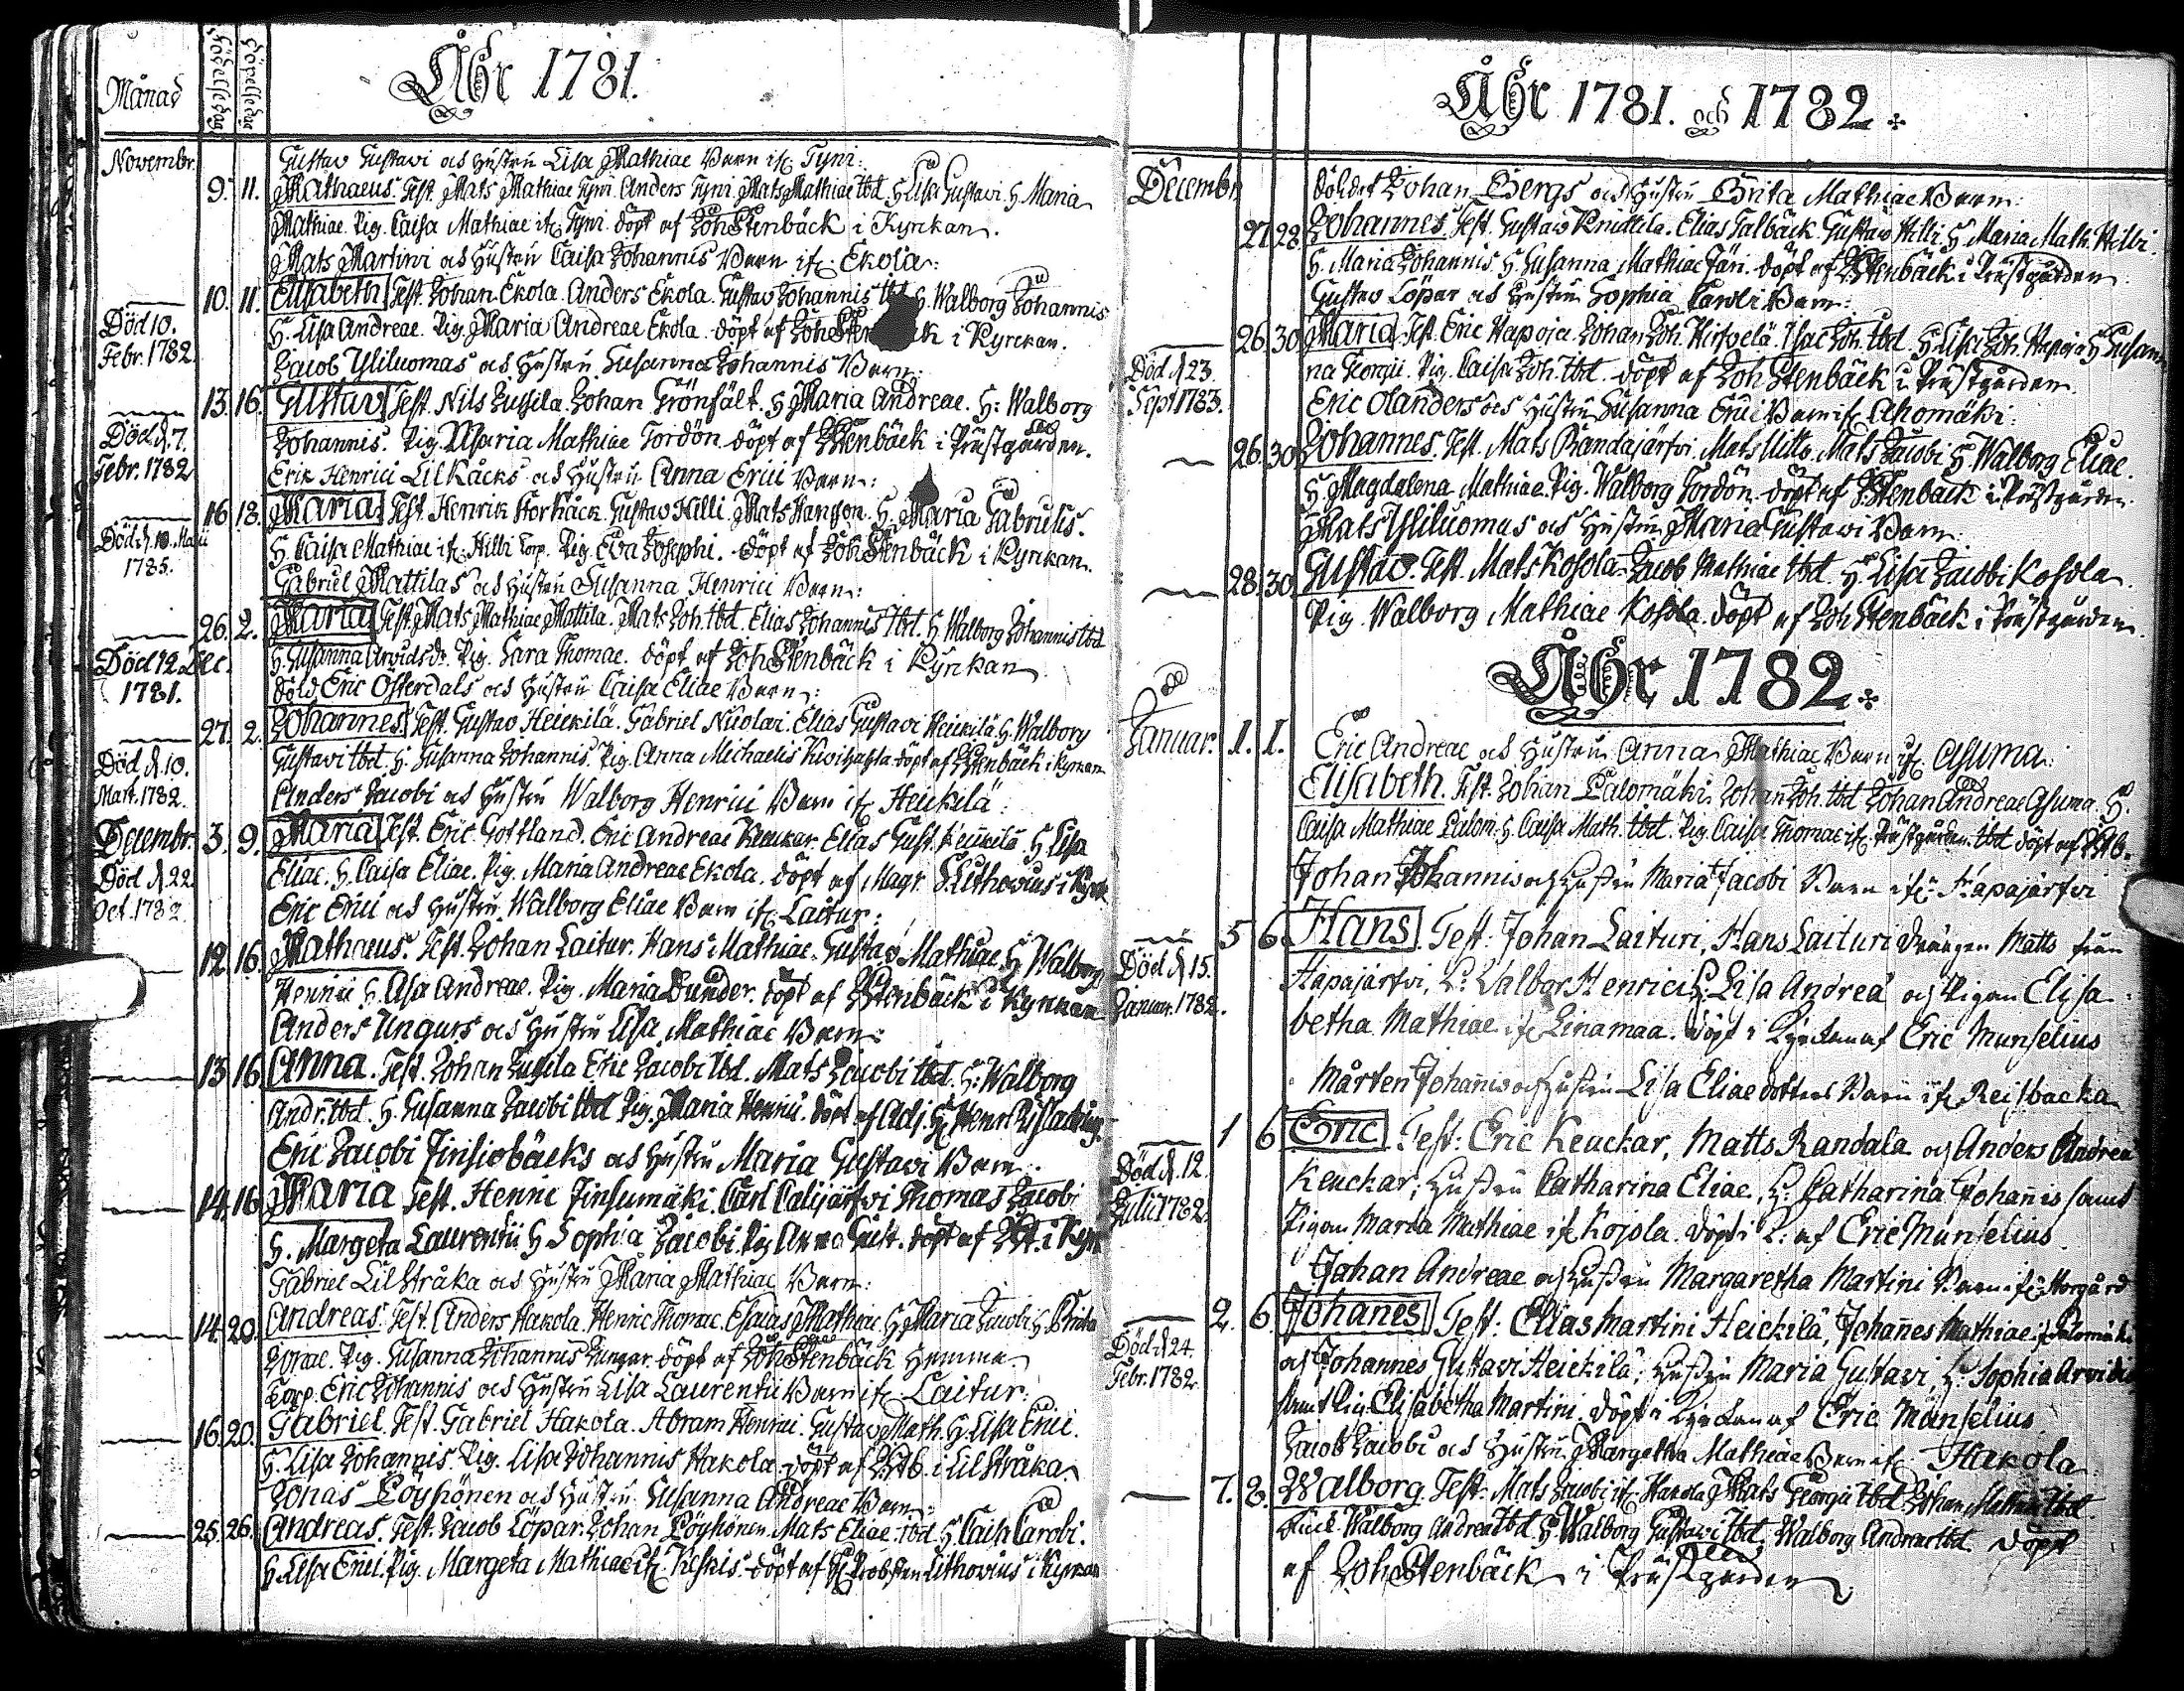 Åhr 1781.
Månad
Födelsedag
Döpelsedag
Novembr.
Gustav Gustavi och Hustru Lisa Mathiae Barn if. Tyni:
9. 11. Mathaeus. Test. Mats Mathiae Tyni. Anders Tyni. Mats Mathiae Ibd. H. Lisa Gustavi. H. Maria
Mathiae. Pig. Caisa Mathiae if. Tyni. döpt af Joh Stenbäck i Kyrckan.
Mats Martini och Hustru Caisa Johannis Barn if. Ekola:
10. 11. Elisabeth Test. Johan Ekola. Anders Ekola. Gustav Johannis Ibd H. Walborg Johannis
Död 10. Febr. 1782.
H. Lisa Andreae. Pig. Maria Andreae Ekola. döpt af Joh Stenbäck i Kyrckan.
Jacob Yliluomas och Hustru Susanna Johannis Barn:
13. 16. Gustav Test. Nils Jussila. Johan Grönfält. H Maria Andreae. H: Walborg
Död d. 7. Febr. 1782
Johannis. Pig. Maria Mathiae Tordön. döpt af JStenbäck i Prästgården.
Erik Henrici Lil Kåcks och Hustru Anna Erici Barn:
16 18. Maria. Test. Henrik Storkåck. Gustav Hilli. Mats Hansson. H. Maria Gabrielis.
Död d. 10. Maii 1785.
H. Caisa Mathiae if. Hilbi Torp. Pig. Eva Josephi. döpt af Joh Stenbäck i Kyrckan.
Gabriel Mattilas och Hustru Susanna Henrici Barn:
26. 2. Maria Test. Mats Mathiae Mattila. Mats Joh. Ibd. Elias Johannis Ibd. H. Walborg Johannis Ibd
Död 12. Dec. 1781.
H. Susanna Arvidsdr. Pig. Sara Thomae. döpt af Joh Stenbäck i Kyrckan
Sold Eric Österdals och Hustru Caisa Eliae Barn:
27. 2. Johannes Test. Gustav Heickilä. Gabriel Nicolai. Elias Gustavi Heickilä. H. Walborg
Död d. 10. Mart. 1782.
Gustavi Ibd. H. Susanna Johannis. Pig. Anna Michaelis döpt af JStenbäck i Kyrckan
Anders Jacobi och Hustru Walborg Henrici Barn if. Heickilä:
Decembr. 3. 9. Maria Test. Eric Gottland. Eric Andreae Keuckar. Elias Gust. Heickilä. H Lisa
Död d. 22. Oct. 1782
Eliae. H. Caisa Eliae. Pig. Maria Andreae Ekola. döpt af Magr. Lithovius i Kyrk
Eric Erici och Hustru Walborg Eliae Barn if. Laitur:
12. 16. Mathaeus. Test. Johan Laitur. Hans Mathiae. Gustav Mathiae. H. Walborg
Henrici H. Lisa Andreae. Pig. Maria Dunder. döpt af JStenbäck i Kyrckan
Anders Ungurs och Hustru Lisa Mathiae Barn:
13 16 Anna. Test. Johan Jussila Eric Jacobi Ibd. Mats Jacobi Ibd. H: Walborg
Andr. Ibd. H. Susanna Jacobi Ibd Pig. Maria Henrici. döpt af Adj. H. Henr
Eric Jacobi Finsiobäcks och Hustru Maria Gustavi Barn.
14. 16 Maria Test. Henric Finsumäki. Carl Calijärfvi Thomas Jacobi
H. Margeta Laurentii H Sophia Jacobi. Pig Anna Gust. döpt af JSt. i Kyrk
Gabriel Lilstråka och Hustru Maria Mathiae Barn:
14. 20. Andreas. Test. Anders Hakola. Henric Thomae. Esaias Mathiae. H. Maria Jacobi H. Brita
Pig. Susanna Johannis Jungar. döpt af Joh Stenbäck Hemma.
Torp. Eric Johannis och Hustru Lisa Laurentii Barn if. Laitur:
16. 20. Gabriel. Test. Gabriel Hakola. Abram Henrici. Gustav Math. H. Lisa Erici.
H. Lisa Johannis. Pig. Lisa Johannis Hakola. döpt af JStb. i Lilstråka
Jonas Löyhönen och Hustru Susanna Andreae Barn:
25. 26. Andreas. Test. Jacob Löpar. Johan Löyhönen. Mats Eliae Ibd. H. Caisa Caroli.
H. Lisa Erici. Pig. Margeta Mathiae if. Keskis. döpt af H. Probsten Lithovius i Kyrckan
Åhr 1781. och 1782.
Decembr.
Soldat Johan Bergs och Hustru Brita Mathiae Barn:
27 28 Johannes. Test. Gustav Knuttila. Elias Talbäck. Gustav Hilli. H Maria Math. Hilbi.
H. Maria Johannis. H. Susanna Mathiae Järi. döpt af JStenbäck i Prästgården
Gustav Löpar och Hustru Sophia Caroli Barn:
26 30 Maria. Test. Eric Haspoja. Johan Joh. Hirfvelä. Isac Joh. Ibd. H. Lisa Joh. Haspoja H Susan
Död d 23. Sept 1783.
na Georgii. Pig. Caisa Joh. Ibd. döpt af Joh Stenbäck i Prästgården.
Eric Olanders och Hustru Susanna Erici Barn if. Ahomäki:
26 30 Johannes. Test. Mats Bandajärfvi. Mats Uitto. Mats Jacobi. H. Walborg Eliae.
H. Magdalena Mathiae. Pig. Walborg Tordön. döpt af J.Stenbäck i Prästgården.
Mats Yliluomas och Hustru Maria Gustavi Barn:
28. 30. Gustav. Test. Mats Kosola. Jacob Mathiae Ibd. H. Lisa Jacobi Kosola.
Pig. Walborg Mathiae Kosola. döpt af Joh Stenbäck i Prästgården.
Åhr 1782.
Januar. 1. 1. Eric Andreae och Hustru Anna Mathiae Barn if. Asuma:
Elisabeth. Test. Johan Palomäki. Johan Joh. Ibd. Johan Andreae Asuma. H.
Caisa Mathiae Palom: H. Caisa Math. Ibd. Pig. Caisa Thomae if. Prästgården. Ibd döpt af JStb.
Johan Johannis och Hustru Maria Jacobi Barn ifr. Hapajärfvi
5 6 Hans. Test: Johan Laituri, Hans Laituri drängen Matts från
Död d 15. Januar. 1782.
Hapajärfvi, H: Valbor Henrici H: Lisa Andreä och Pigan Elisa-
betha Mathiae if. Linamaa. döpt i Kyrckan af Eric Munselius
Mårten Johannis och Hustru Lisa Eliae dotters Barn ifr Reisbacka
1 6 Eric. Test: Eric Keuckar, Matts Randala och Anders Andreä
Död d. 12. Julii 1782.
Keuckar; Hustru Catharina Eliae, H: Catharina Johannis samt
Pigan Maria Mathiae ifr Kojola. döpt i K: af Eric Munselius.
Johan Andreae och Hustru Margaretha Martini Barn ifr: Norgård
2. 6. Johanes Test: Elias Martini Heickilä, Johannes Mathiae if. Palomäki
Död d 24. Febr. 1782.
och Johannes Gustavi Heickilä; Hustru Maria Gustavi, H: Sophia Arvidi
samt Pig: Elisabetha Martini. döpt i Kyrckan af Eric Munselius
Jacob Jacobi och Hustru Margetha Mathiae Barn if. Hakola
7. 8. Walborg. Test: Mats Jacobi if. Hakola Mats Georgii Ibd. Johan Mathiae Ibd.
Walborg Andreae Ibd. H. Walborg Gustavi Ibd. Walborg Andreae Ibd. döpt
af Joh Stenbäck i Prästgården